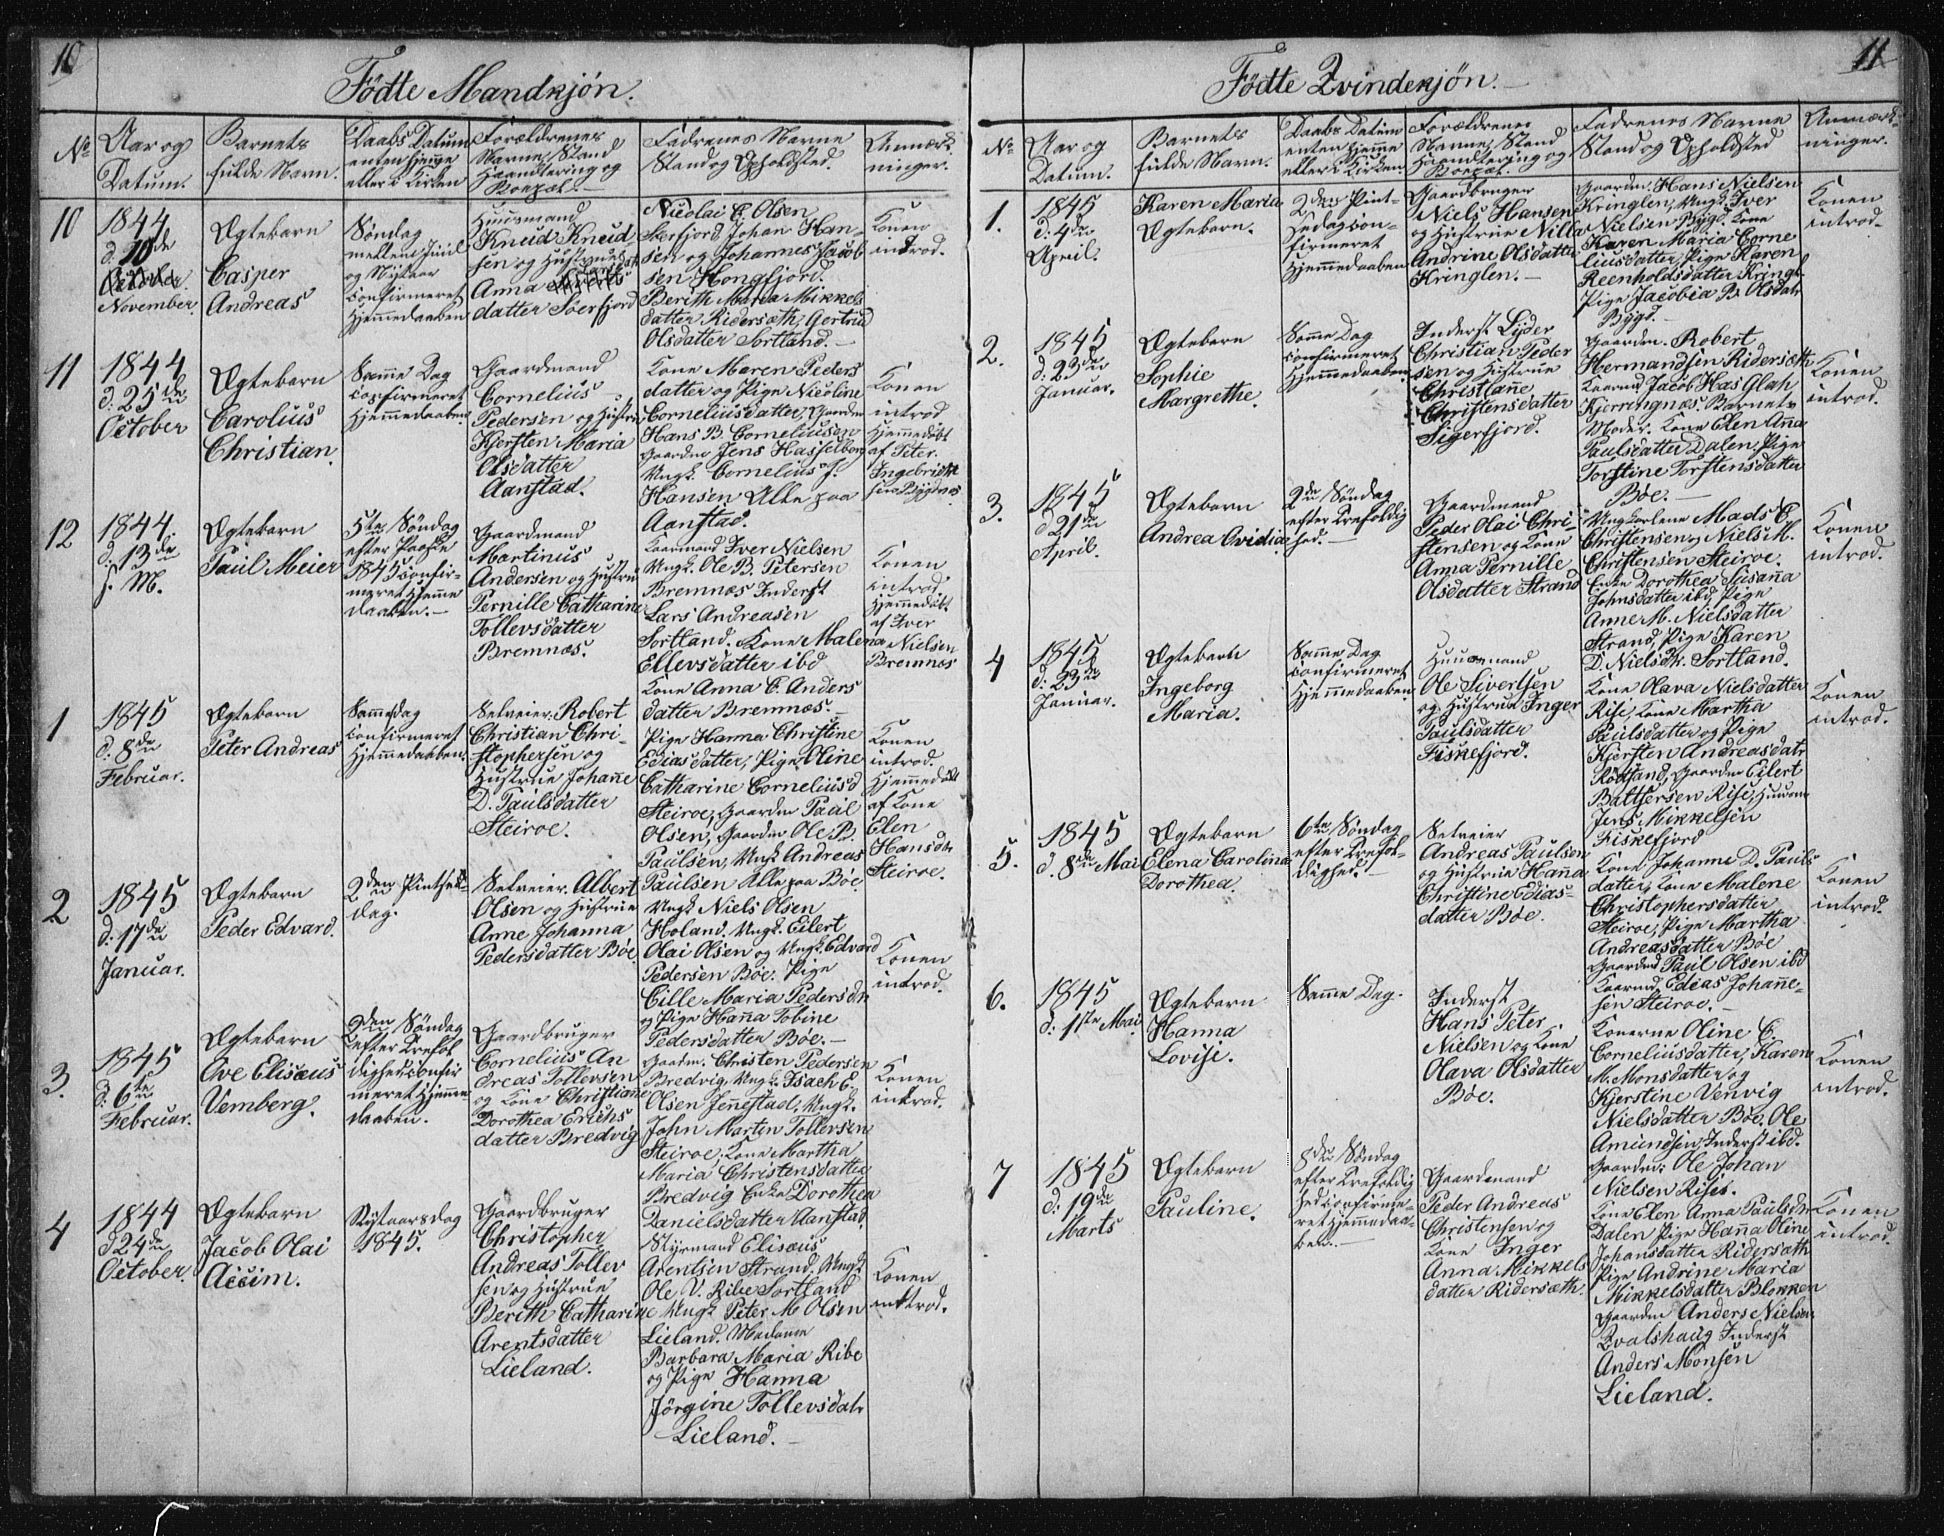 10
Födte Mandkjön.
No
Aar og
Datum.
Barnets
fulde Navn.
Daabs Datum
enten hjeme
eller i Kirken
Forældrenes
Navne, Stand
Haandtering og
Boepæl.
Fadrenes Navne
Stand og Opholdsted.
Anmærk-
ninger.
10
1844
d. 10de
October
November.
Ægtebarn
Casper
Andreas
Söndag
mellem Juul
og Nytaar
confirmeret
hjemmedaaben
Huusmand
Knud Knud
sen og Hustrue
Anna
datter Soerfjord
Nicolai C. Olsen
Soerfjord, Johan Han-
sen og Johannes Jacob
sen Hongfjord.
Berith Maria Mikkels
datter Ridersæth, Gertrud
Olsdatter Sortland.
Konen
introd.
11
1844
d: 25de
October
Ægtebarn
Carolius
Christian.
Samme Dag
confirmeret
hjemmedaaben
Gaardmand
Cornelius
Pedersen og Hustrue
Kjersten Maria
Olsdatter
Aanstad.
Kone Maren Peders
datter og Pige Nicoline
Corneliusdatter, Gaardm
Hans B. Corneliusen
Gaardm Jens Hasselborg
Ungk. Cornelius J.
Hansen Alle paa
Aanstad.
Konen
introd
Hjemmedöbt
af Peter
Ingebrigt
sen Bygdnes
12
1844
d: 13de
s. M.
Ægtebarn
Paul Meier
5te Söndag
efter Paaske
1845 confir-
meret hjemme
daaben.
Gaardmand
Martinus
Andersen og Hustrue
Pernille Catharine
Tollevsdatter
Bremnæs.
Kaarmand Iver Nielsen
Ungk. Ole B. Petersen
Bremnæs Inderst
Lars Andreasen
Sortland. Kone Malena
Ellevsdatter ibd
Kone Anna C. Anders
datter Bremnæs.
Konen
introd.
Hjemmedöbt
af Iver
Nielsen
Bremnæs
1
1845
d. 8de
Februar.
Ægtebarn
Peter Andreas
Samedag
confirmeret
hjemmedaaben.
Selveier. Robert
Christian Chri-
stophersen og
Hustrue Johane
D. Paulsdatter
Steiroe.
Pige Hanna Christine
Ediasdatter, Pige Oline
Catharine Corneliusd
Steiroe, Gaardm Paul
Olsen, Gaardm Ole P.
Paulsen, Ungk Andreas
Paulsen Alle paa Böe
Konen
introd.
Hjemmedöbt
af Kone
Elen
Hansdtr
Steiroe.
2
1845
d: 17de
Januar.
Ægtebarn
Peder Edvard.
2den Pintse-
dag.
Selveier. Albert
Olsen og Hustrue
Anne Johanna
Pedersdatter Böe
Ungk Niels Olsen
Holand. Ungk. Eilert
Olai Olsen og Ungk. Edvard
Pedersen Böe. Pige
Cille Maria Pedersdtr
og Pige Hanna Tobine
Pedersdatter Böe.
Konen
introd.
3.
1845
d: 6te
Februar.
Ægtebarn
Ove Elisæus
Vemberg.
2den Söndag
efter Trefol
dighed confir
meret hjemme
daaben.
Gaardbruger
Cornelius An
dreas Tollevsen
og Kone Christiane
Dorothea Erichs
datter Bredvig
Gaardm. Christen Pedersen
Bredvig, Ungk. Isach C.
Olsen Jennestad, Ungk.
John Marten Tollevsen
Steiroe, Kone Martha
Maria Christensdatter
Bredvig Enke Dorothea
Danielsdatter Aanstad.
Konen
introd.
4
1844
d 24de
October.
Ægtebarn
Jacob Olai
Accim.
Nytaarsdag
1845.
Gaardbruger
Christopher
Andreas Tollev
sen og Hustrue
Berith Catharine
Arentsdatter
Lieland.
Styrmand Elisæus
Arentsen Strand, Ungk
Ole V. Ribe Sortland
Ungk Peter M Olsen
Lieland. Madamme
Barbara Maria Ribe
og Pige Hanna
Jörgine Tollevsdatr
Lieland.
Konen
introd.
11
Födte Qvindekjön.
No
Aar og
Datum.
Barnets
fulde Navn.
Daabs Datum
enten hjemme
eller i Kirken.
Forældrenes
Navne, Stand
Haandtering og
Boepæl.
Fadrenes Navne
Stand og Opholdsted
Anmærk-
ninger.
1.
1845
d: 4de
April.
Karen Maria
Ægtebarn.
2den Pint-
sedag con-
firmeret
hjemmedaaben
Gaardbruger
Niels Hansen
og Hustrue Nilla
Andrine Olsdatter
Kringlen.
Gaardm. Hans Nielsen
Kringlen, Ungk. Iver
Nielsen Bygd. Kone
Karen Maria Corne
liusdatter, Pige Karen
Reenholdsdatter Kringl.
Pige Jacobia B. Olsdatr
Bygd.
Konen
introd.
2.
1845
d: 23de
Januar.
Ægtebarn
Sophie
Margrethe.
Samme Dag
confirmeret
hjemmedaaben.
Inderst Lyder
Christian Peder
sen og Hustrue
Christiane
Christensdatter
Sigerfjord.
Gaardm. Robert
Hermandsen Ridersæth
Kaarmd Jacob Has Glah
Kjerringnæs. Barnets
Moder. Kone Elen Ana
Paulsdatter Dalen, Pige
Torstine Torstensdatter
Böe.
Konen
introd.
3.
1845
d 21de
April.
Ægtebarn
Andrea Ovidia
2de Söndag
efter Trefoldig
hed.
Gaardmand
Peder Olai Chri-
stensen og Kone
Anna Pernille
Olsdatter Strand
Ungkarlene Mads C
Christensen og Niels M.
Christensen Steiroe.
Enke Dorothea Susana
Johnsdatter ibd, Pige
Anne M. Nielsdatter
Strand, Pige Karen
D. Nielsdtr. Sortland.
Konen
introd.
4
1845
d: 23de
Januar.
Ægtebarn
Ingeborg
Maria.
Samme Dag
confirmeret
hjemmedaaben.
Huusmand
Ole Sivertsen
og Hustrue Inger
Paulsdatter
Fiskefjord.
Kone Olava Nielsdatter
Rise, Kone Martha
Paulsdatter og Pige
Kjersten Andreasdatr
Rödsand, Gaardm Eilert
Baltsersen Rise, Huusm
Jens Mikkelsen
Fiskefjord
Konen
introd.
5.
1845
d. 8de Mai
Ægtebarn
Elena Carolina
Dorothea.
6te Söndag
efter Trefol-
dighed.
Selveier
Andreas Paulsen
og Hustrue Hana
Christine Edias-
datter Böe.
Kone Johanne D. Pauls
datter, Kone Malene
Christophersdatter
Steiroe, Pige Martha
Andreasdatter Böe
Gaardmd Paul Olsen ibd
Kaarmd. Edias Johanne-
sen Steiroe.
Konen
introd.
6.
1845
d: 11te Mai
Ægtebarn
Hanna
Lovise.
Samme Dag.
Inderst
Hans Peter
Nielsen og Kone
Olava Olsdatter
Böe.
Konerne Oline C.
Corneliusdatter, Karen
M. Monsdatter og
Kjerstine Venvig
Nielsdatter Böe. Ole
Amundsen Inderst ibd.
Gaardm: Ole Johan
Nielsen Rise.
Konen
introd.
7
1845
d: 19de
Marts
Ægtebarn
Pauline.
8de Söndag
efter Trefoldig
hed confirme-
ret hjemmedaa-
ben.
Gaardmand
Peder Andreas
Christensen og
Kone Inger
Anna Mikkels
datter Ridersæth.
Kone Elen Anna Paulsdtr
Dalen Pige Hana Oline
Johansdatter Ridersæth
Pige Andrine Maria
Mikkelsdatter Blokken
Gaardm Anders Nielsen
Qvalshaug Inderst
Anders Monsen
Lieland.
Konen
introd.